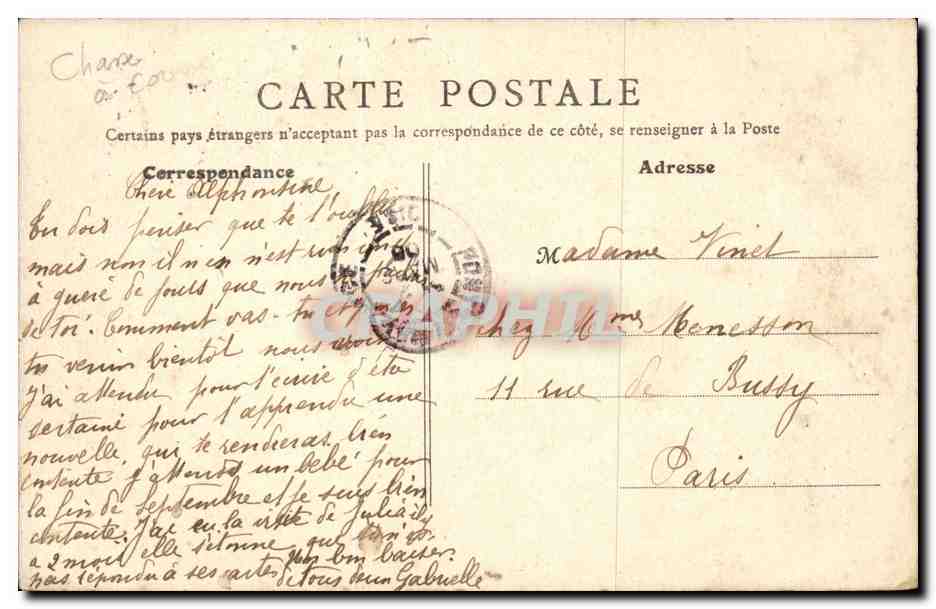 Chasse
à
CARTE POSTALE
Certains pays étrangers n'acceptant pas la correspondance de ce côté, se renseigner à la Poste
Correspondance
Adresse
Chere Alphonsine
Tu dois penser que te l'oublie
mais non il n'en n'est rien
à guere de jours que nous
de toi. Comment vas-tu
tu venir bientôt nous voir
J'ai attendu pour t'ecrire d'etu
sertaine pour t'apprendre une
nouvelle qui te renderas bien
contente J'attends un bebé pour
la fin de septembre et je suis bien
contente. J'ai eu la visite de Julia il y
a 2 mois elle s'etonne que tu n'es
pas repondu à ses cartes Un bon baiser
de tous deux Gabrielle
Madame Vinet
chez Mme Monesson
11 rue de Bussy
Paris
CPAPHIL